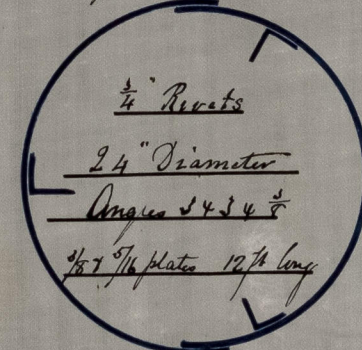 3/4" Rivets
24" Diameter
Angles 3 x 3 x 3/8
3/8 & 5/16 plates 12 ft long